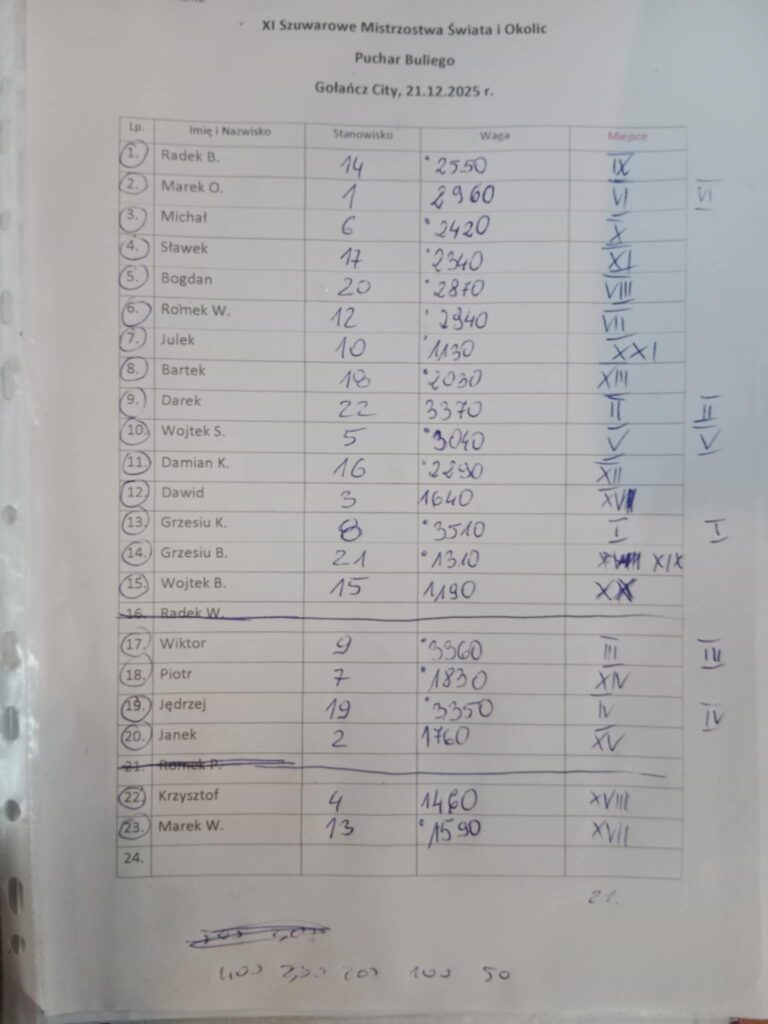 XI Szuwarowe Mistrzostwa Świata i Okolic
Puchar Buliego
Gołańcz City, 21.12.2025 r.
Lp. Imię i Nazwisko Stanowisko Waga Miejsce
1. Radek B. 14 2550 IX
2. Marek O. 1 2960 VI VI
3. Michał 6 2420 X
4. Sławek 17 2340 XI
5. Bogdan 20 2870 VIII
6. Romek W. 12 2940 VII
7. Julek 10 1130 XXI
8. Bartek 18 2030 XIII
9. Darek 22 3370 II II
10. Wojtek S. 5 3040 V V
11. Damian K. 16 2290 XII
12. Dawid 3 1640 XVI
13. Grzesiu K. 8 3510 I I
14. Grzesiu B. 21 1310 XIX
15. Wojtek B. 15 1190 XX
16. Radek W.
17. Wiktor 9 3360 III III
18. Piotr 7 1830 XIV
19. Jędrzej 19 3350 IV IV
20. Janek 2 1760 XV
21. Romek P.
22. Krzysztof 4 1460 XVIII
23. Marek W. 13 1590 XVII
24.
21.
100 50